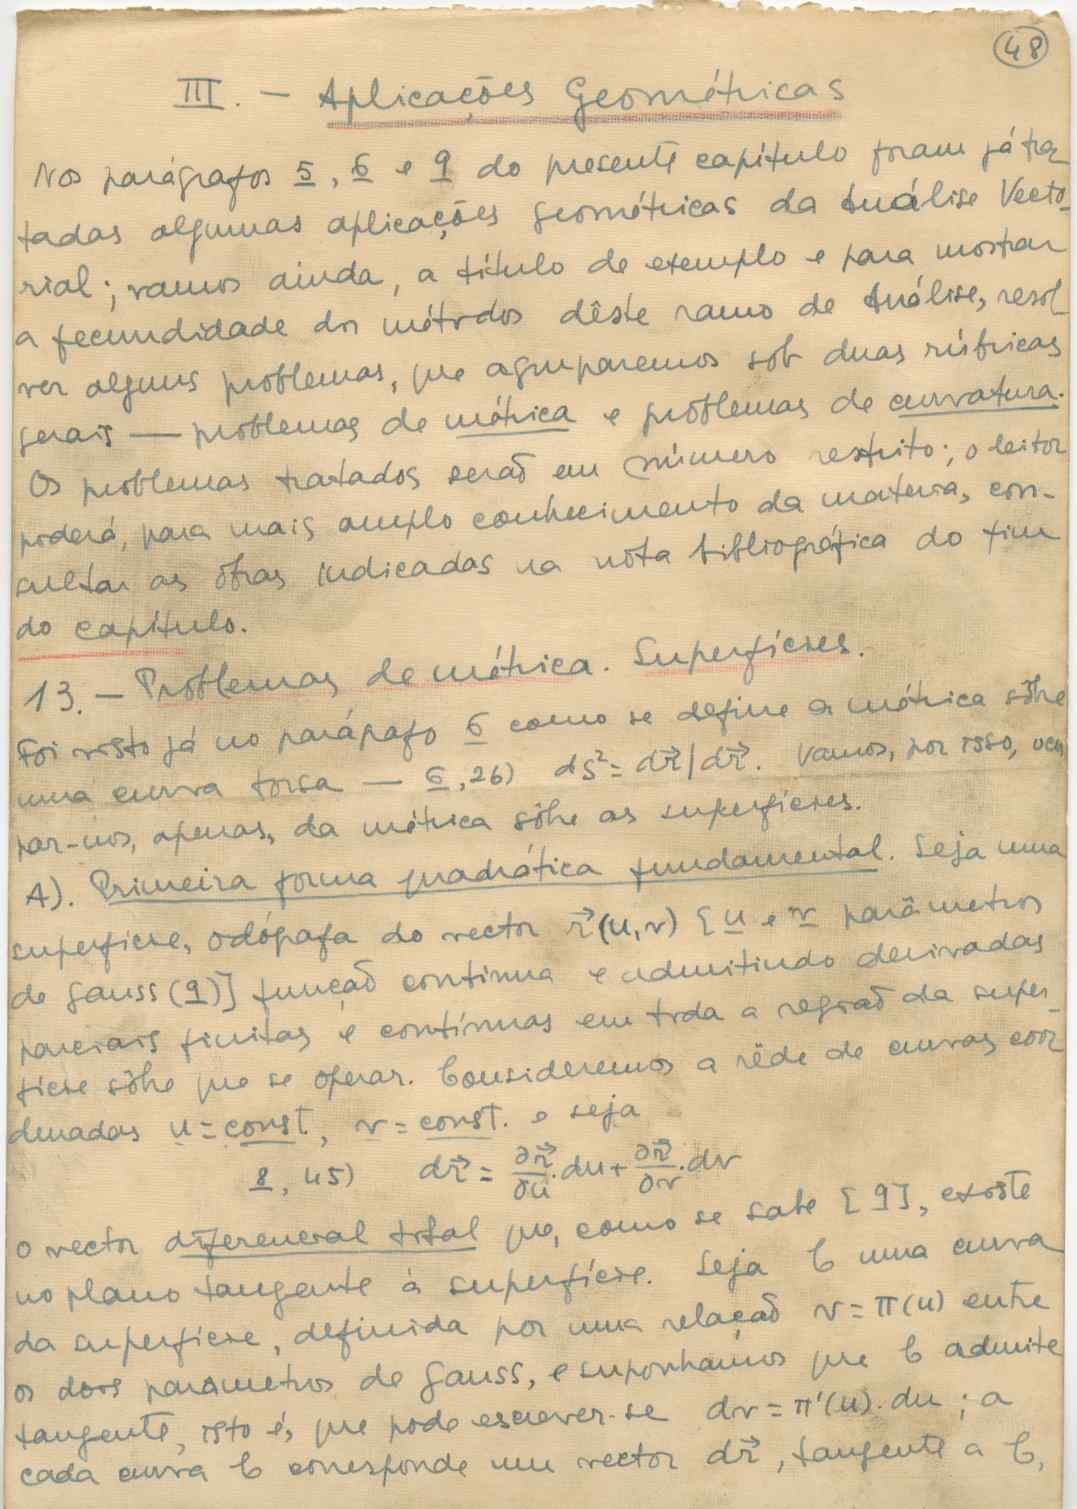 48
III. — Aplicações Geométricas
Nos parágrafos 5, 6 e 9 do presente capítulo foram já tra
tadas algumas aplicações geométricas da Análise Vecto-
rial; vamos ainda, a título de exemplo e para mostrar
a fecundidade dos métodos dêste ramo de Análise, resol
ver alguns problemas, que agruparemos sob duas rúbricas
gerais — problemas de métrica e problemas de curvatura.
Os problemas tratados serão em número restrito; o leitor
poderá, para mais amplo conhecimento da matéria, con-
sultar as obras indicadas na nota bibliográfica do fim
do capítulo.
13. — Problemas de métrica. Superfícies.
Foi visto já no parágrafo 6 como se define a métrica sôbre
uma curva torsa — 6, 26) ds² = dr⃗|dr⃗. Vamos, por isso, ocu
par-nos, apenas, da métrica sôbre as superfícies.
A). Primeira forma quadrática fundamental. Seja uma
superfície, odógrafa do vector r⃗(u,v) [u e v parâmetros
de Gauss (9)] função contínua e admitindo derivadas
parciais finitas e contínuas em toda a região da super-
fície sôbre que se operar. Consideremos a rêde de curvas coor
denadas u = const., v = const. e seja
8, 45) dr⃗ = ∂r⃗/∂u · du + ∂r⃗/∂v · dv
o vector diferencial total que, como se sabe [9], existe
no plano tangente à superfície. Seja C uma curva
da superfície, definida por uma relação v = π(u) entre
os dois parâmetros de Gauss, e suponhamos que C admite
tangente, isto é, que pode escrever-se dv = π'(u). du ; a
cada curva C corresponde um vector dr⃗, tangente a C,